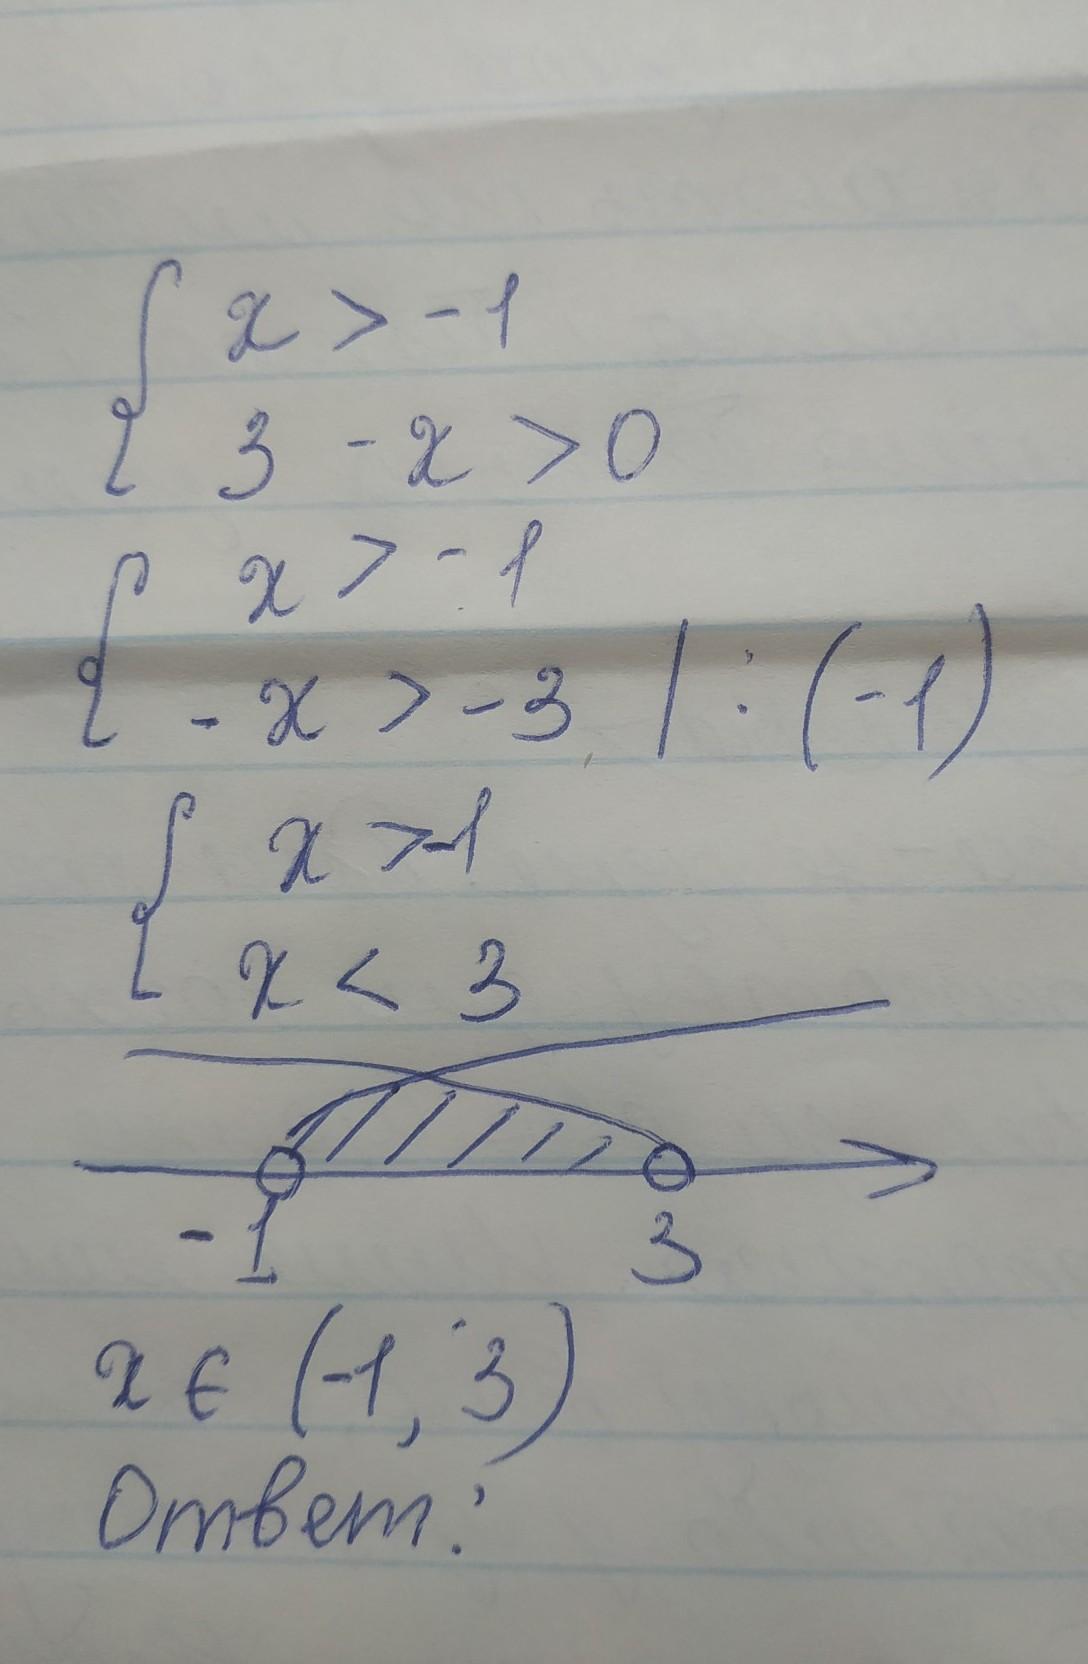 { x > -1
3 - x > 0
{ x > -1
- x > -3 | : (-1)
{ x > -1
x < 3
-1 3
x ∈ (-1, 3)
Ответ: